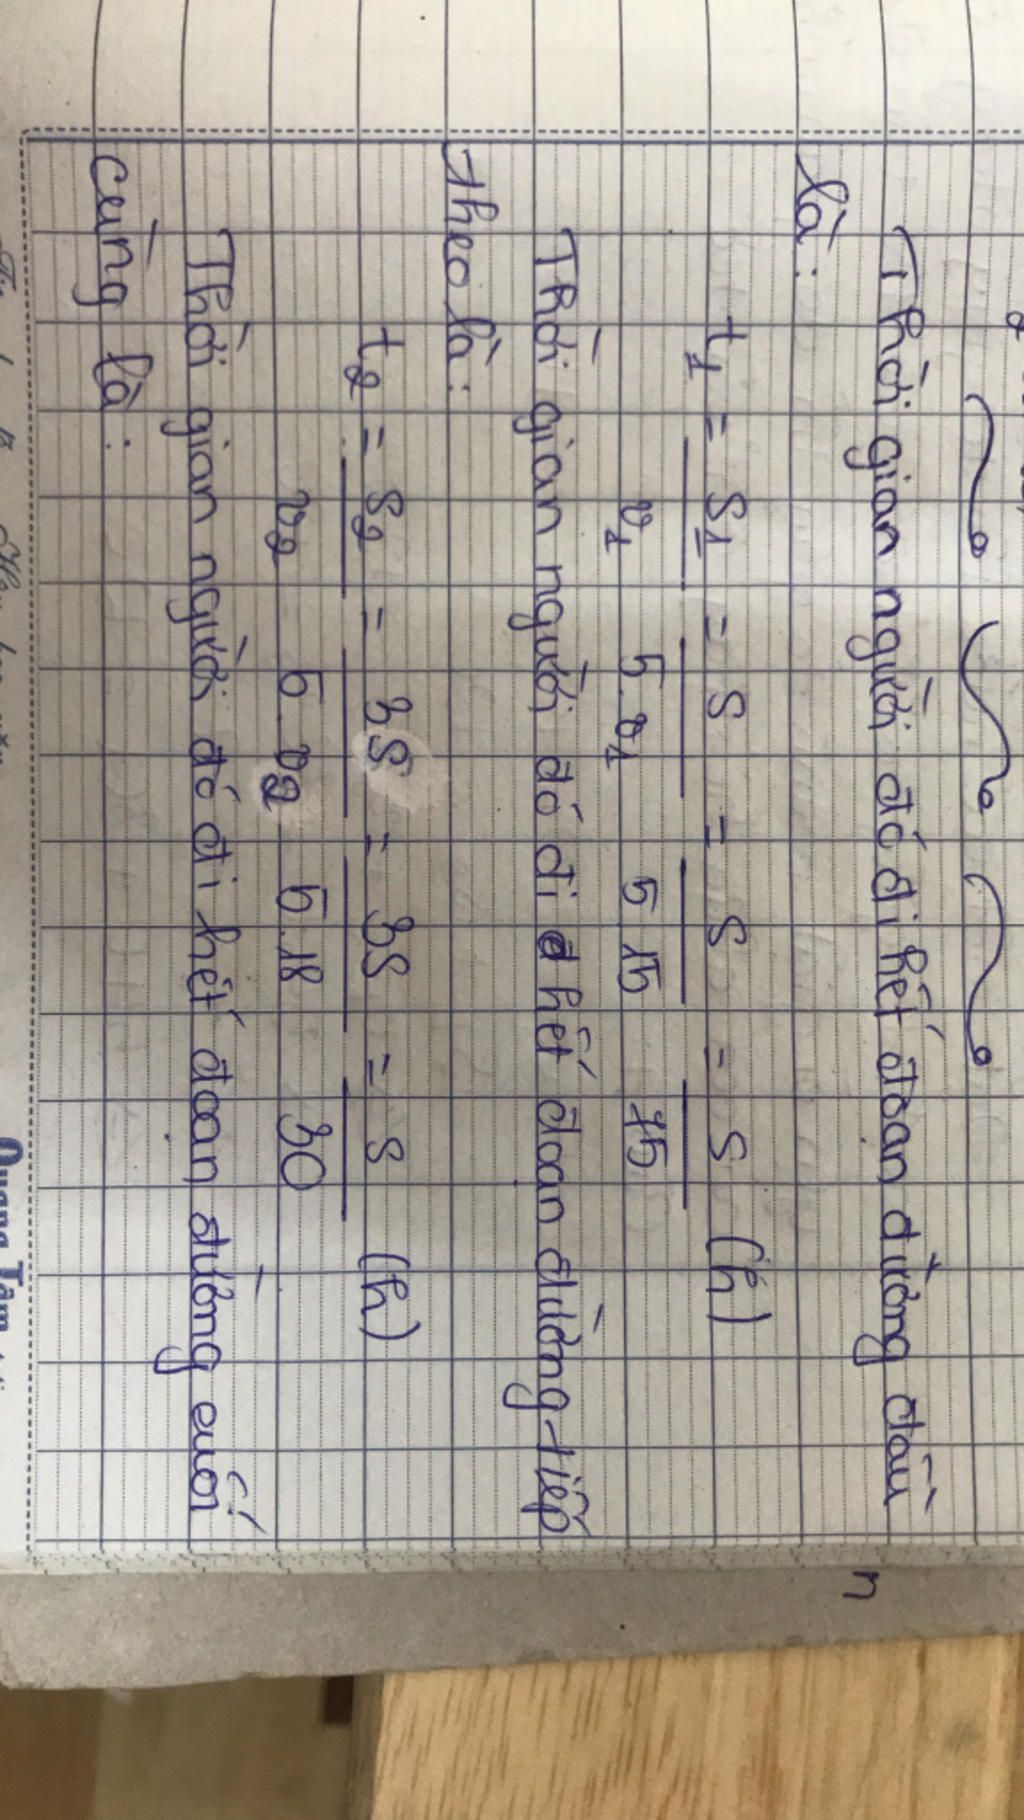 Thời gian người đó đi hết đoan đường đầu
là:
t1 = S1/v1 = S/5.v1 = S/5.15 = S/75 (h)
Thời gian người đó đi hết đoan đường tiếp
theo là:
t2 = S2/v2 = 3S/5.v2 = 3S/5.18 = S/30 (h)
Thời gian người đó đi hết đoan đường cuối
cùng là: